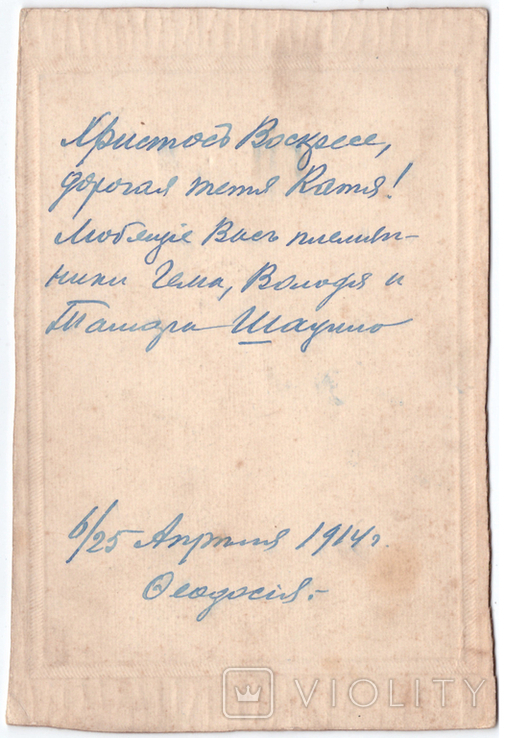 Христосъ Воскресе,
дорогая тетя Катя!
Любящіе Васъ племян-
ники Гема, Володя и
Тамара Шаурко
6/25 Апреля 1914 г.
Ѳеодосія.-
VIOLITY